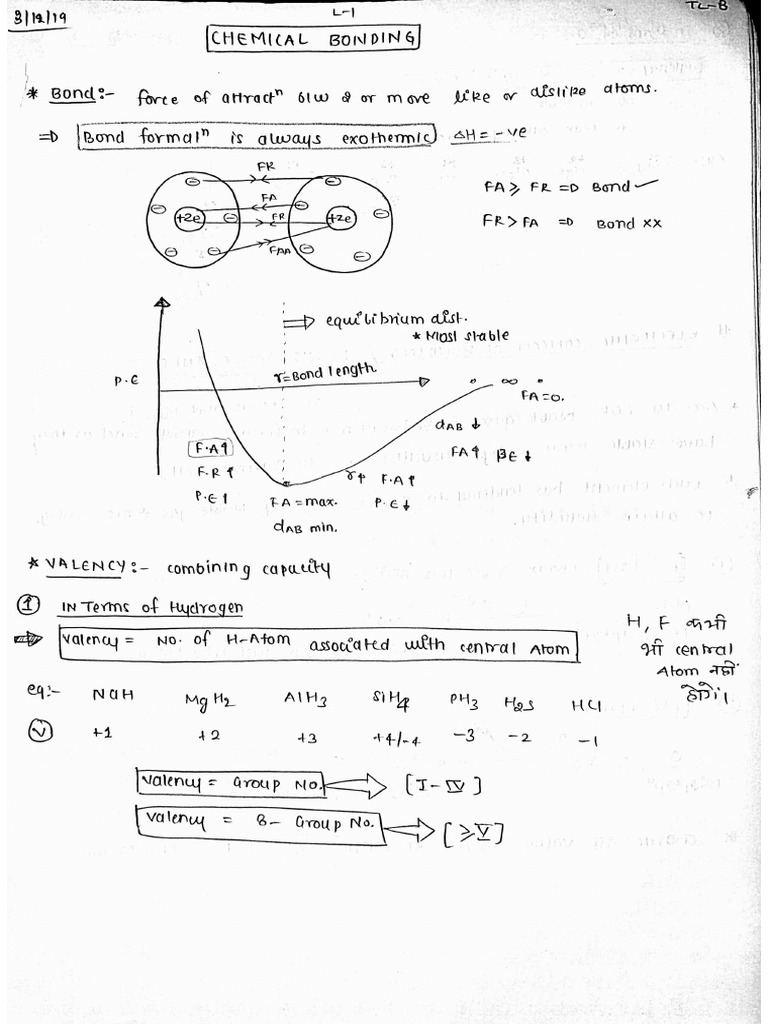 3/12/19
L-1
TL-B
CHEMICAL BONDING
* Bond:- force of attractⁿ b/w 2 or more like or dislike atoms.
=D Bond formatⁿ is always exothermic ΔH = -ve
FR
FA
FR
FAA
+2e
+2e
FA ≥ FR =D Bond ✓
FR > FA =D Bond xx
P.E
⇒ equilibrium dist.
* Most stable
r = Bond length
∞
FA = 0.
dAB ↓
FA↑ PE ↓
F.A↑
F.R↑
P.E↑
FA = max.
dAB min.
r↓ F.A↑
P.E↓
* VALENCY:- combining capacity
① IN Terms of Hydrogen
⇒ Valency = NO. of H-Atom associated with central Atom
H, F कभी
भी central
Atom नहीं
होंगे।
eg:- NaH MgH2 AlH3 SiH4 PH3 H2S HCl
Ⓥ +1 +2 +3 +4/-4 -3 -2 -1
Valency = Group No. ⇒ [I - IV]
Valency = 8 - Group No. ⇒ [≥V]